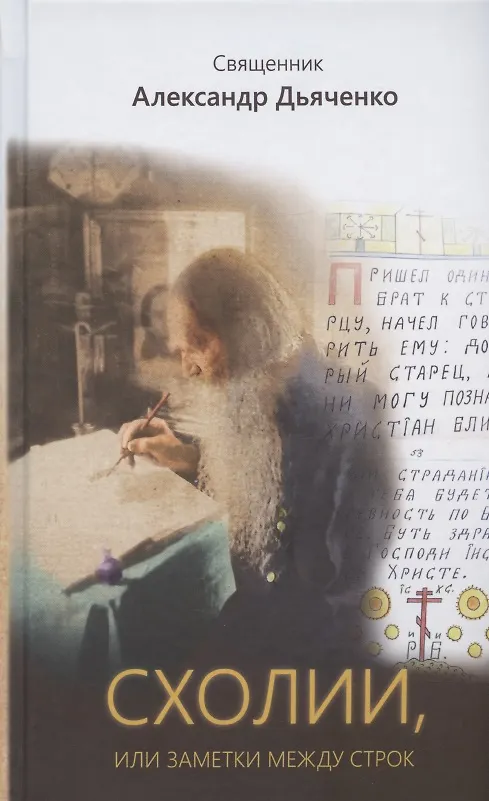 Священник
Александр Дьяченко
ПРИШЕЛ ОДИН
БРАТ К СТ
РЦУ, НАЧЕЛ ГОВ
РИТЬ ЕМУ: ДО
РЫЙ СТАРЕЦ,
НИ МОГУ ПОЗНА
ХРИСТІАН БЛИ
53
СТРАДАНІ
БУДЕТ
ПО
БУТЬ ЗДРА
ГОСПОДИ ІИС
ХРИСТЕ.
ІС ХС.
И И
Р Б.
СХОЛИИ,
ИЛИ ЗАМЕТКИ МЕЖДУ СТРОК